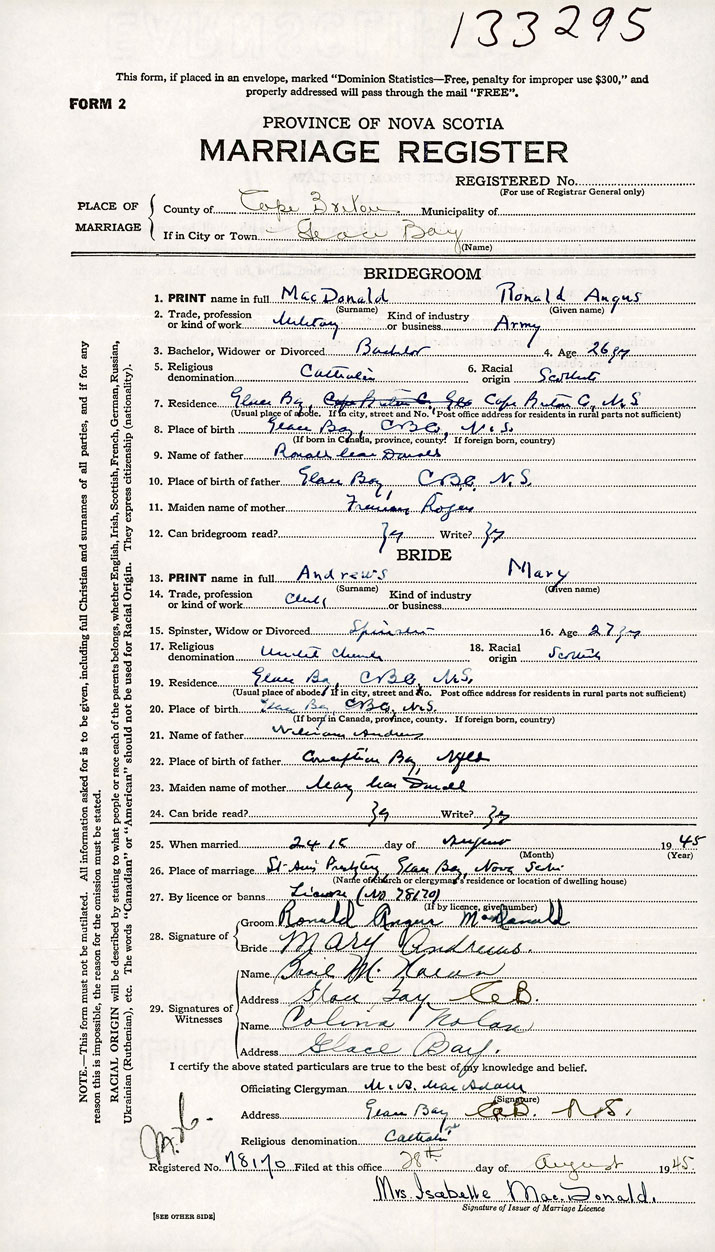 133295
This form, if placed in an envelope, marked "Dominion Statistics—Free, penalty for improper use $300," and
properly addressed will pass through the mail "FREE".
FORM 2
PROVINCE OF NOVA SCOTIA
MARRIAGE REGISTER
REGISTERED No.
(For use of Registrar General only)
PLACE OF MARRIAGE
County of Cape Breton Municipality of
If in City or Town Glace Bay
(Name)
BRIDEGROOM
1. PRINT name in full MacDonald Ronald Angus
(Surname) (Given name)
2. Trade, profession or kind of work Military Kind of industry or business Army
3. Bachelor, Widower or Divorced Bachelor 4. Age 26 yr
5. Religious denomination Catholic 6. Racial origin Scottish
7. Residence Glace Bay, Cape Breton C, N.S
(Usual place of abode. If in city, street and No. Post office address for residents in rural parts not sufficient)
8. Place of birth Glace Bay, C.B.Co, N.S.
(If born in Canada, province, county. If foreign born, country)
9. Name of father Ronald MacDonald
10. Place of birth of father Glace Bay C.B.Co. N.S.
11. Maiden name of mother
12. Can bridegroom read? Yes Write? Yes
BRIDE
13. PRINT name in full Andrews Mary
(Surname) (Given name)
14. Trade, profession or kind of work Clerk Kind of industry or business
15. Spinster, Widow or Divorced Spinster 16. Age 27 yr
17. Religious denomination United Church 18. Racial origin Scottish
19. Residence Glace Bay, C.B.Co, N.S.
(Usual place of abode. If in city, street and No. Post office address for residents in rural parts not sufficient)
20. Place of birth Glace Bay, C.B.Co, N.S.
(If born in Canada, province, county. If foreign born, country)
21. Name of father William Andrews
22. Place of birth of father Conception Bay, Nfld
23. Maiden name of mother Mary MacDonald
24. Can bride read? Yes Write? Yes
25. When married 24th day of August 1945
(Month) (Year)
26. Place of marriage St. Ann's Glace Bay, Nova Scotia
(Name of church or clergyman's residence or location of dwelling house)
27. By licence or banns Licence (No 78170)
(If by licence, give number)
28. Signature of
Groom Ronald Angus MacDonald
Bride Mary Andrews.
29. Signatures of Witnesses
Name M.
Address Glace Bay C.B.
Name Nolan
Address Glace Bay.
I certify the above stated particulars are true to the best of my knowledge and belief.
Officiating Clergyman M. A. MacAdam
(Signature)
Address Glace Bay C.B. N.S.
Religious denomination Catholic
Registered No. 78170 Filed at this office 28th day of August 1945.
Mrs. Isabelle MacDonald.
Signature of Issuer of Marriage Licence
[SEE OTHER SIDE]
NOTE.—This form must not be mutilated. All information asked for is to be given, including full Christian and surnames of all parties, and if for any
reason this is impossible, the reason for the omission must be stated.
RACIAL ORIGIN will be described by stating to what people or race each of the parents belongs, whether English, Irish, Scottish, French, German, Russian,
Ukrainian (Ruthenian), etc. The words "Canadian" or "American" should not be used for Racial Origin. They express citizenship (nationality).